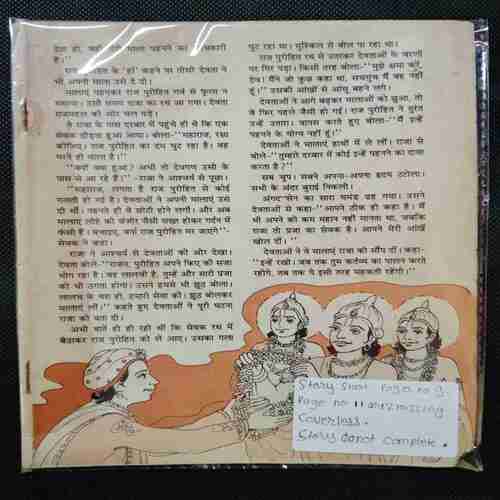 देता हो, वही मेरी माला पहनने का अधिकारी
है।"
राज पुरोहित के 'हां' कहने पर तीसरे देवता ने
भी अपनी माला उसे दे दी।
मालाएं पहनकर राज पुरोहित गर्व से फूला न
समाया। उसी समय राजा का रथ आ गया। देवता
राजमहल की ओर चल पड़े।
वे राजा के पास दरबार में पहुंचे ही थे कि एक
सेवक दौड़ता हुआ आया। बोला-"महाराज, रक्षा
कीजिए। राज पुरोहित का दम घुट रहा है। वह
मरने ही वाला है।"
"क्यों क्या हुआ? अभी तो देवगण उसी के
पास से आ रहे हैं।" -राजा ने आश्चर्य से पूछा।
"महाराज, लगता है राज पुरोहित से कोई
गलती हो गई है। देवताओं ने अपनी मालाएं उसे
दी थीं। पहनते ही वे छोटी होने लगीं। और अब
मालाएं लोहे की जंजीर जैसी सख्त होकर गर्दन में
फंसी हैं। बचाइए, वर्ना राज पुरोहित मर जाएंगे"-
सेवक ने कहा।
राजा ने आश्चर्य से देवताओं की ओर देखा।
देवता बोले-"राजन, पुरोहित अपने किए की सजा
भोग रहा है। वह लालची है, तुम्हें और सारी प्रजा
को भी ठगता होगा। उसने हमसे भी झूठ बोला।
लालच के वश हो, हमारी सेवा की। झूठ बोलकर
मालाएं लीं।" कहते हुए देवताओं ने पूरी घटना
राजा को बता दी।
अभी बातें हो ही रही थीं कि सेवक रथ में
बैठाकर राज पुरोहित को ले आए। उसका गला
घुट रहा था। मुश्किल से बोल पा रहा था।
राज पुरोहित रथ से उतरकर देवताओं के चरणों
पर गिर पड़ा। किसी तरह बोला-"मुझे क्षमा करें,
देव! मैंने जो कुछ कहा था, सचमुच मैं वह नहीं
हूं।" उसकी आंखों से आंसू बहने लगे।
देवताओं ने आगे बढ़कर मालाओं को छुआ, तो
वे फिर पहले जैसी हो गईं। राज पुरोहित ने तुरंत
उन्हें उतारा। वापस करते हुए बोला-"मैं इन्हें
पहनने के योग्य नहीं हूं।"
देवताओं ने मालाएं हाथों में ले लीं। राजा से
बोले-"तुम्हारे दरबार में कोई इन्हें पहनने का दावा
करता है?"
सब चुप। सबने अपना-अपना हृदय टटोला।
सभी के अंदर बुराई निकली।
अंगद सेन का सारा घमंड ढह गया। उसने
देवताओं से कहा-"आपने ठीक ही कहा है। मैं
भी आपने को कम महान नहीं मानता था, जबकि
राजा तो प्रजा का सेवक है। आपने मेरी आंखें
खोल दीं।
देवताओं ने वे मालाएं राजा को सौंप दीं। कहा-
"इन्हें रखो। जब तक तुम कर्तव्य का पालन करते
रहोगे, तब तक ये इसी तरह महकती रहेंगी।"
Story Start Page no 9
Page no 11 and 2 missing
Cover loss.
Story do not complete.